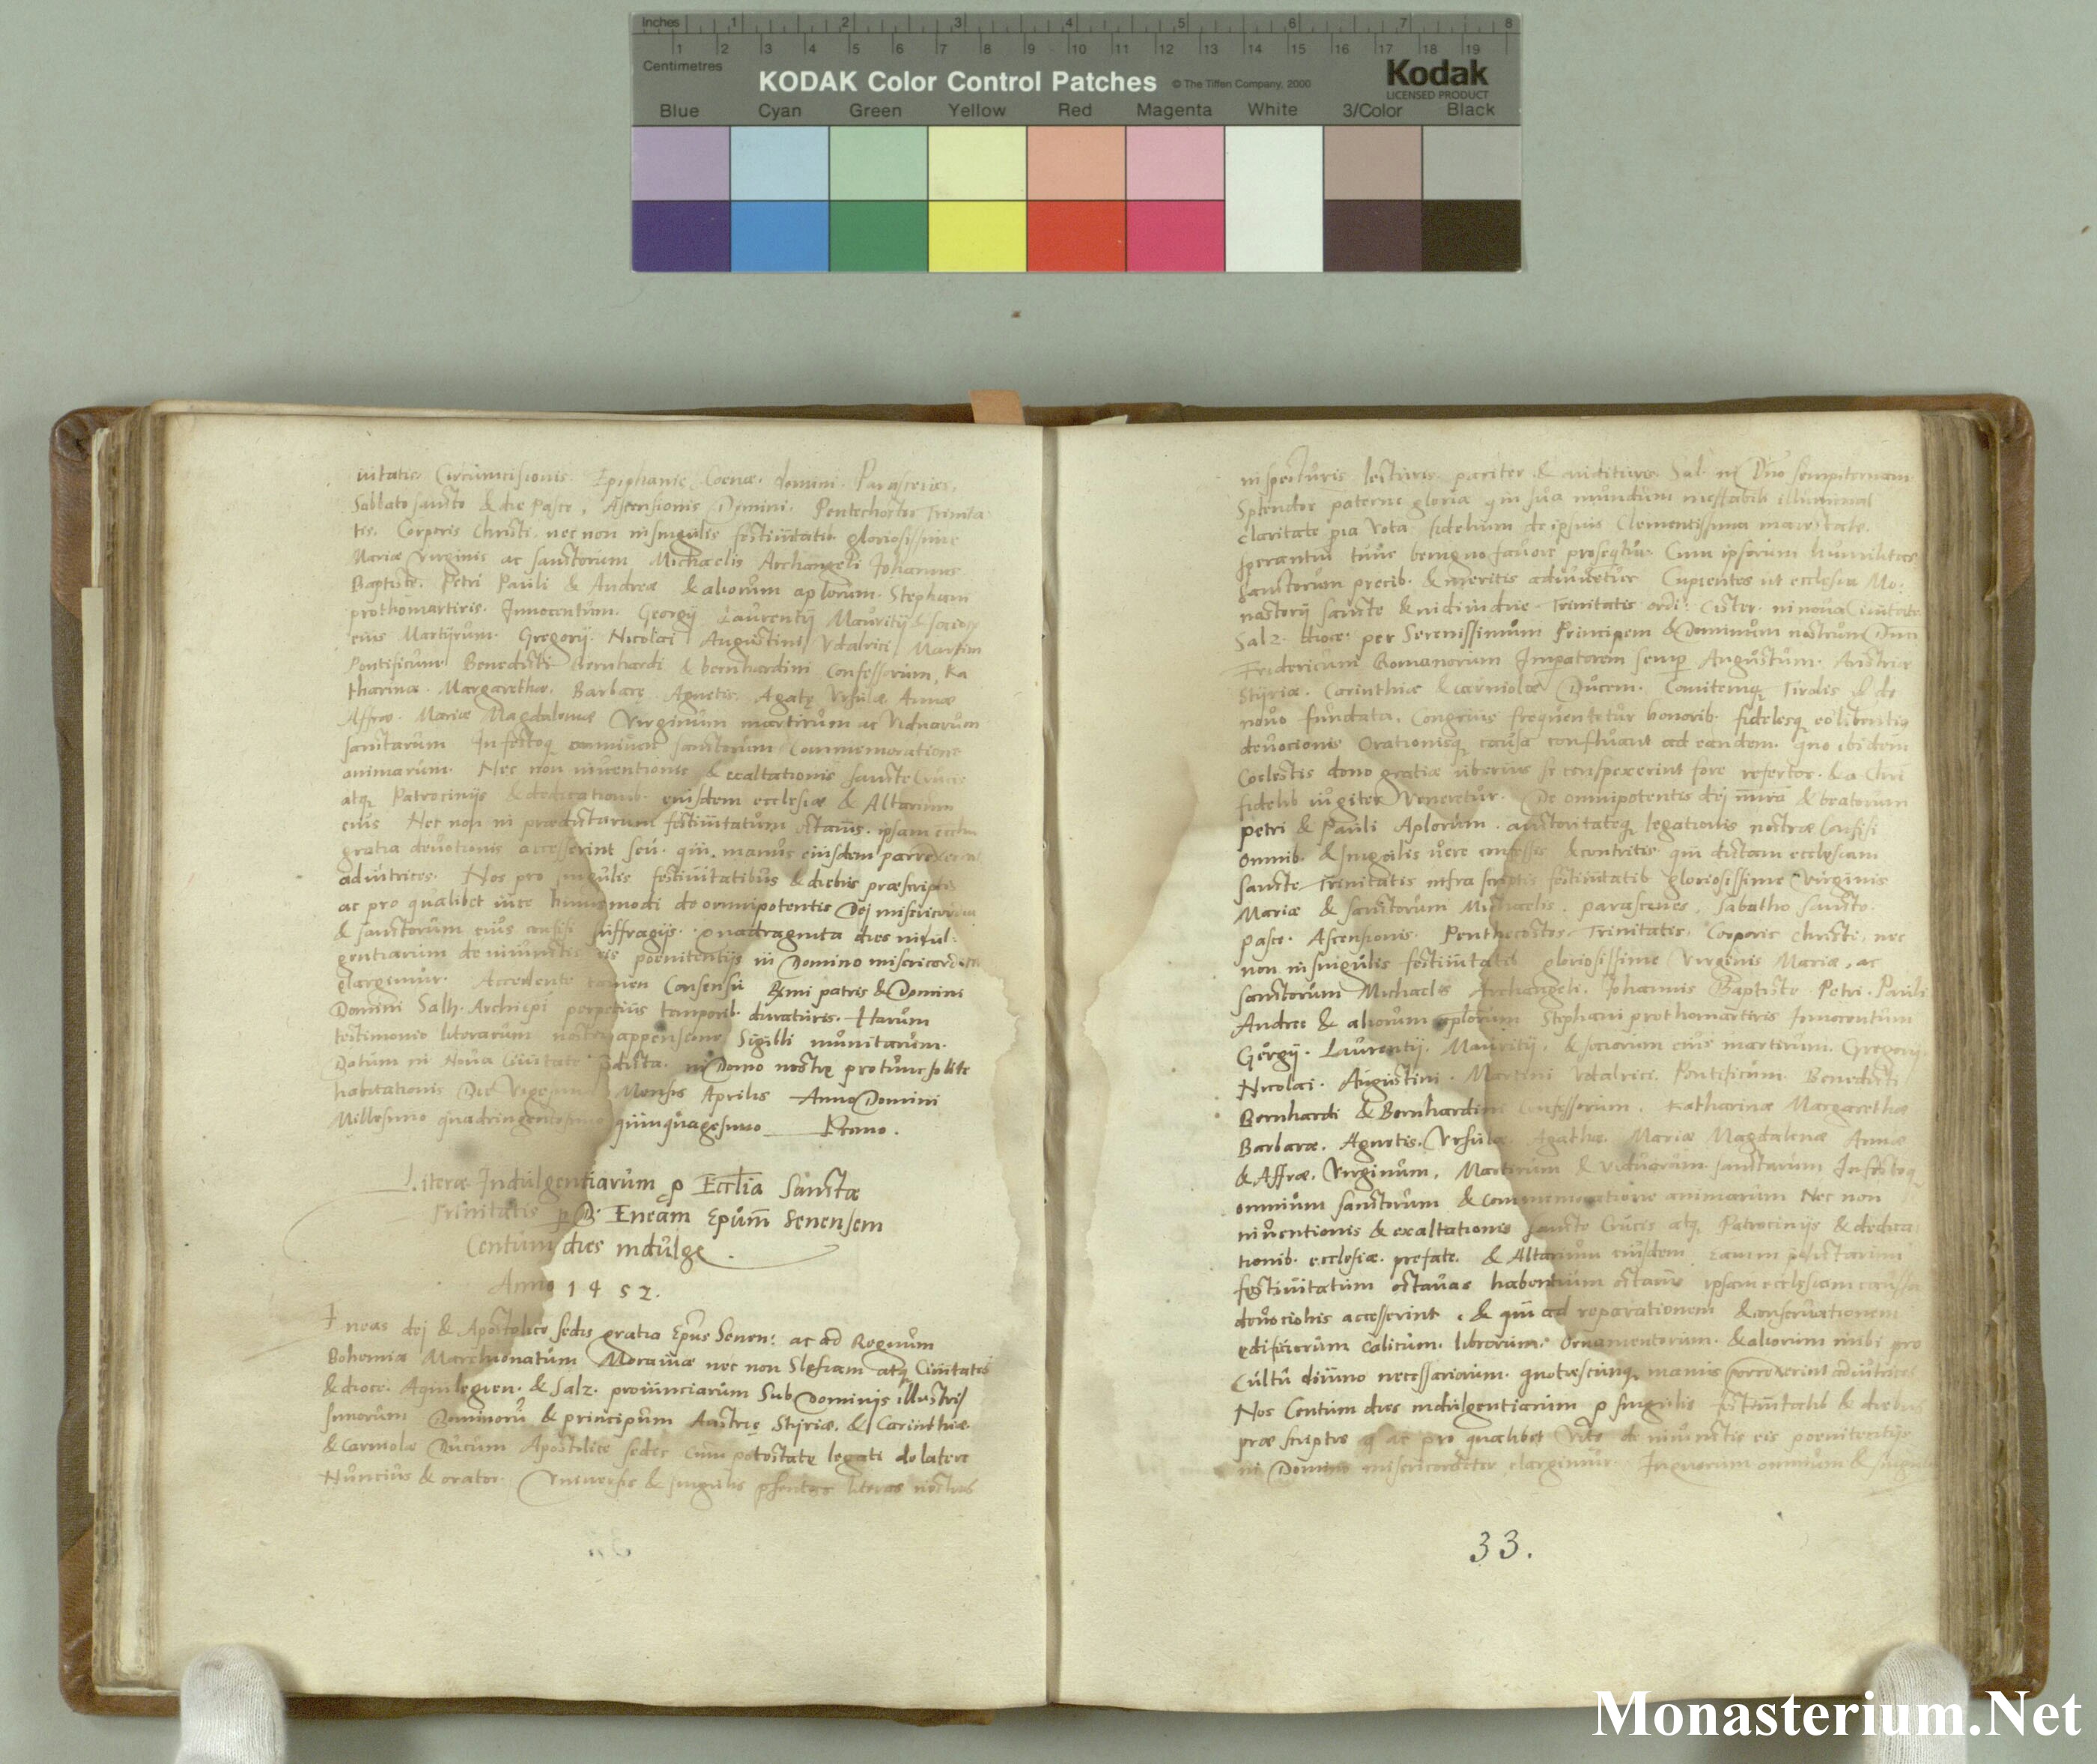 Inches 1 2 3 4 5 6 7 8
1 2 3 4 5 6 7 8 9 10 11 12 13 14 15 16 17 18 19
Centimetres
KODAK Color Control Patches © The Tiffen Company, 2000 Kodak
LICENSED PRODUCT
Blue Cyan Green Yellow Red Magenta White 3/Color Black
iuitatis Circumcisionis Epiphanie Coenae domini Parasceues
Sabbato sancto & die Pasce, Ascensionis Domini Pentechostes Trinita
tis. Corporis Christi nec non in singulis festiuitatib gloriosissime
Mariae Virginis ac sanctorum Michaelis Archangeli Johannis
Baptiste. Petri Pauli & Andreae & aliorum aplorum. Stephani
prothomartiris. Innocentum. Georgij Laurentij Mauritij & socior
eius Martyrum. Gregorij. Nicolai Augustini Vdalrici Martini
Pontificum Benedicti Bernhardi & bernhardini Confessorum, Ka
tharinae. Margarethae. Barbare Agnetis. Agate Vrsulae Annae
Affrae. Mariae Magdalenae Virginum martirum ac Viduarum
sanctarum In festoq omnium sanctorum Commemoratione
animarum. Nec non inuentionis & exaltationis sancte Crucis
atq Patrocinijs & dedicationib. eiusdem ecclesiae & Altarium
eius Nec non in praedictarum festiuitatum octauis. ipsam
gratia deuotionis accesserint seu. qui. manus eiusdem
adiutrices. Nos pro singulis festiuitatibus & diebus praescriptis
ac pro qualibet uice huiusmodi de omnipotentis Dej misericordia
& sanctorum eius confisi suffragijs. quadraginta dies indul:
gentiarum de iniunctis eis poenitentijs in Domino misericorditer
elargimur. Accedente tamen Consensu Rmi patris & Domini
Domini Salz. Archiepi perpetuis temporib. duraturis. Harum
testimonio literarum nostri appensione Sigilli munitarum.
Datum in Noua Ciuitate pdicta. in Domo nostre protunc solite
habitationis Die Vigesima Mensis Aprilis Anno Domini
Millesimo quadringentesimo quinquagesimo Primo.
Literae Indulgentiarum p Ecclia Sanctae
Trinitatis p D. Eneam Epum Senensem
Centum dies indulge.
Anno 1452.
Eneas dej & Apostolice sedis gratia Epus Senen: ac ad Regnum
Bohemiae Marchionatum Morauiae nec non Slesiam atq Ciuitates
& dioce. Aquilegien. & Salz. prouinciarum Sub Dominijs illustris
simorum Dominoru & principum Austrie Styriae. & Carinthiae.
& Carniolae Ducum Apostolice sedis cum potestate legati de latere
Nuncius & orator. Vniuersis & singulis psentes literas nostras
inspecturis lecturis pariter & audituris Sal. in Dno sempiternam
Splendor paterne gloria q in sua mundum ineffabili illuminat
claritate pia Vota fidelium de ipsius Clementissima maiestate.
sperantiu tunc benigno fauore prosequitur Cum ipsorum humilitas
sanctorum precib. & meritis adiuuetur Cupientes ut ecclesia Mo:
nasterij sancte & indiuidue Trinitatis ordi: Cister. in noua Ciuitate
Salz. dioce. per Serenissimum Principem & Dominum nostrum Dnm
Fridericum Romanorum Impatorem semp Augustum. Austriae
Styriae. Carinthiae & carniolae Ducem. Comitemq Tirolis de
nouo fundata, Congruis frequentetur honorib. fidelesq eo libentig
deuocionis Orationisq causa confluant ad eandem. quo ibidem
Coelestis dono gratiae uberius se conspexerint fore refertos. & a Chri
fidelib iugiter Veneretur. De omnipotentis dej mia & beatorum
petri & Pauli Aplorum. auctoritateq legationis nostrae Confisi
omnib. & singulis uere confessis & contritis qui dictam ecclesiam
sancte Trinitatis infra scriptis festiuitatib gloriosissime Virginis
Mariae & sanctorum Michaelis. parasceues, sabatho sancto.
pasce. Ascensionis. Penthecostes Trinitatis. Corporis Christi, nec
non in singulis festiuitatib gloriosissime Virginis Mariae, ac
sanctorum Michaelis Archangeli. Johannis Baptiste Petri. Pauli
Andree & aliorum aplorum Stephani prothomartiris Innocentum
Gergij. Laurentij. Mauritij. & sociorum eius martirum. Gregorij
Nicolai. Augustini. Martini Vdalrici. Pontificum. Benedicti
Bernhardi & Bernhardini Confessorum. Katharinae Margarethae
Barbarae. Agnetis. Vrsulae. Agathae. Mariae Magdalenae Annae
& Affrae. Virginum. Martirum & Viduarum. sanctarum In festoq
omnium sanctorum & commemoratione animarum Nec non
inuentionis & exaltationis sancte Crucis atq Patrocinijs & dedica
tionib. ecclesiae. prefate. & Altarium eiusdem
festiuitatum octauas habentium octauis ipsam ecclesiam caussa
deuocionis accesserint. & qui ad reparationem & conseruationem
edificiorum calicum. librorum. Ornamentorum. & aliorum inibi pro
Cultu diuino necessariorum. quotiescunq manus porrexerint adiutrices
Nos Centum dies indulgentiarum p singulis festiuitatib & diebus
prae scriptis ac pro qualibet Vice de iniunctis eis poenitentijs
in Domino misericorditer elargimur. In quorum omnium &
33.
Monasterium.Net